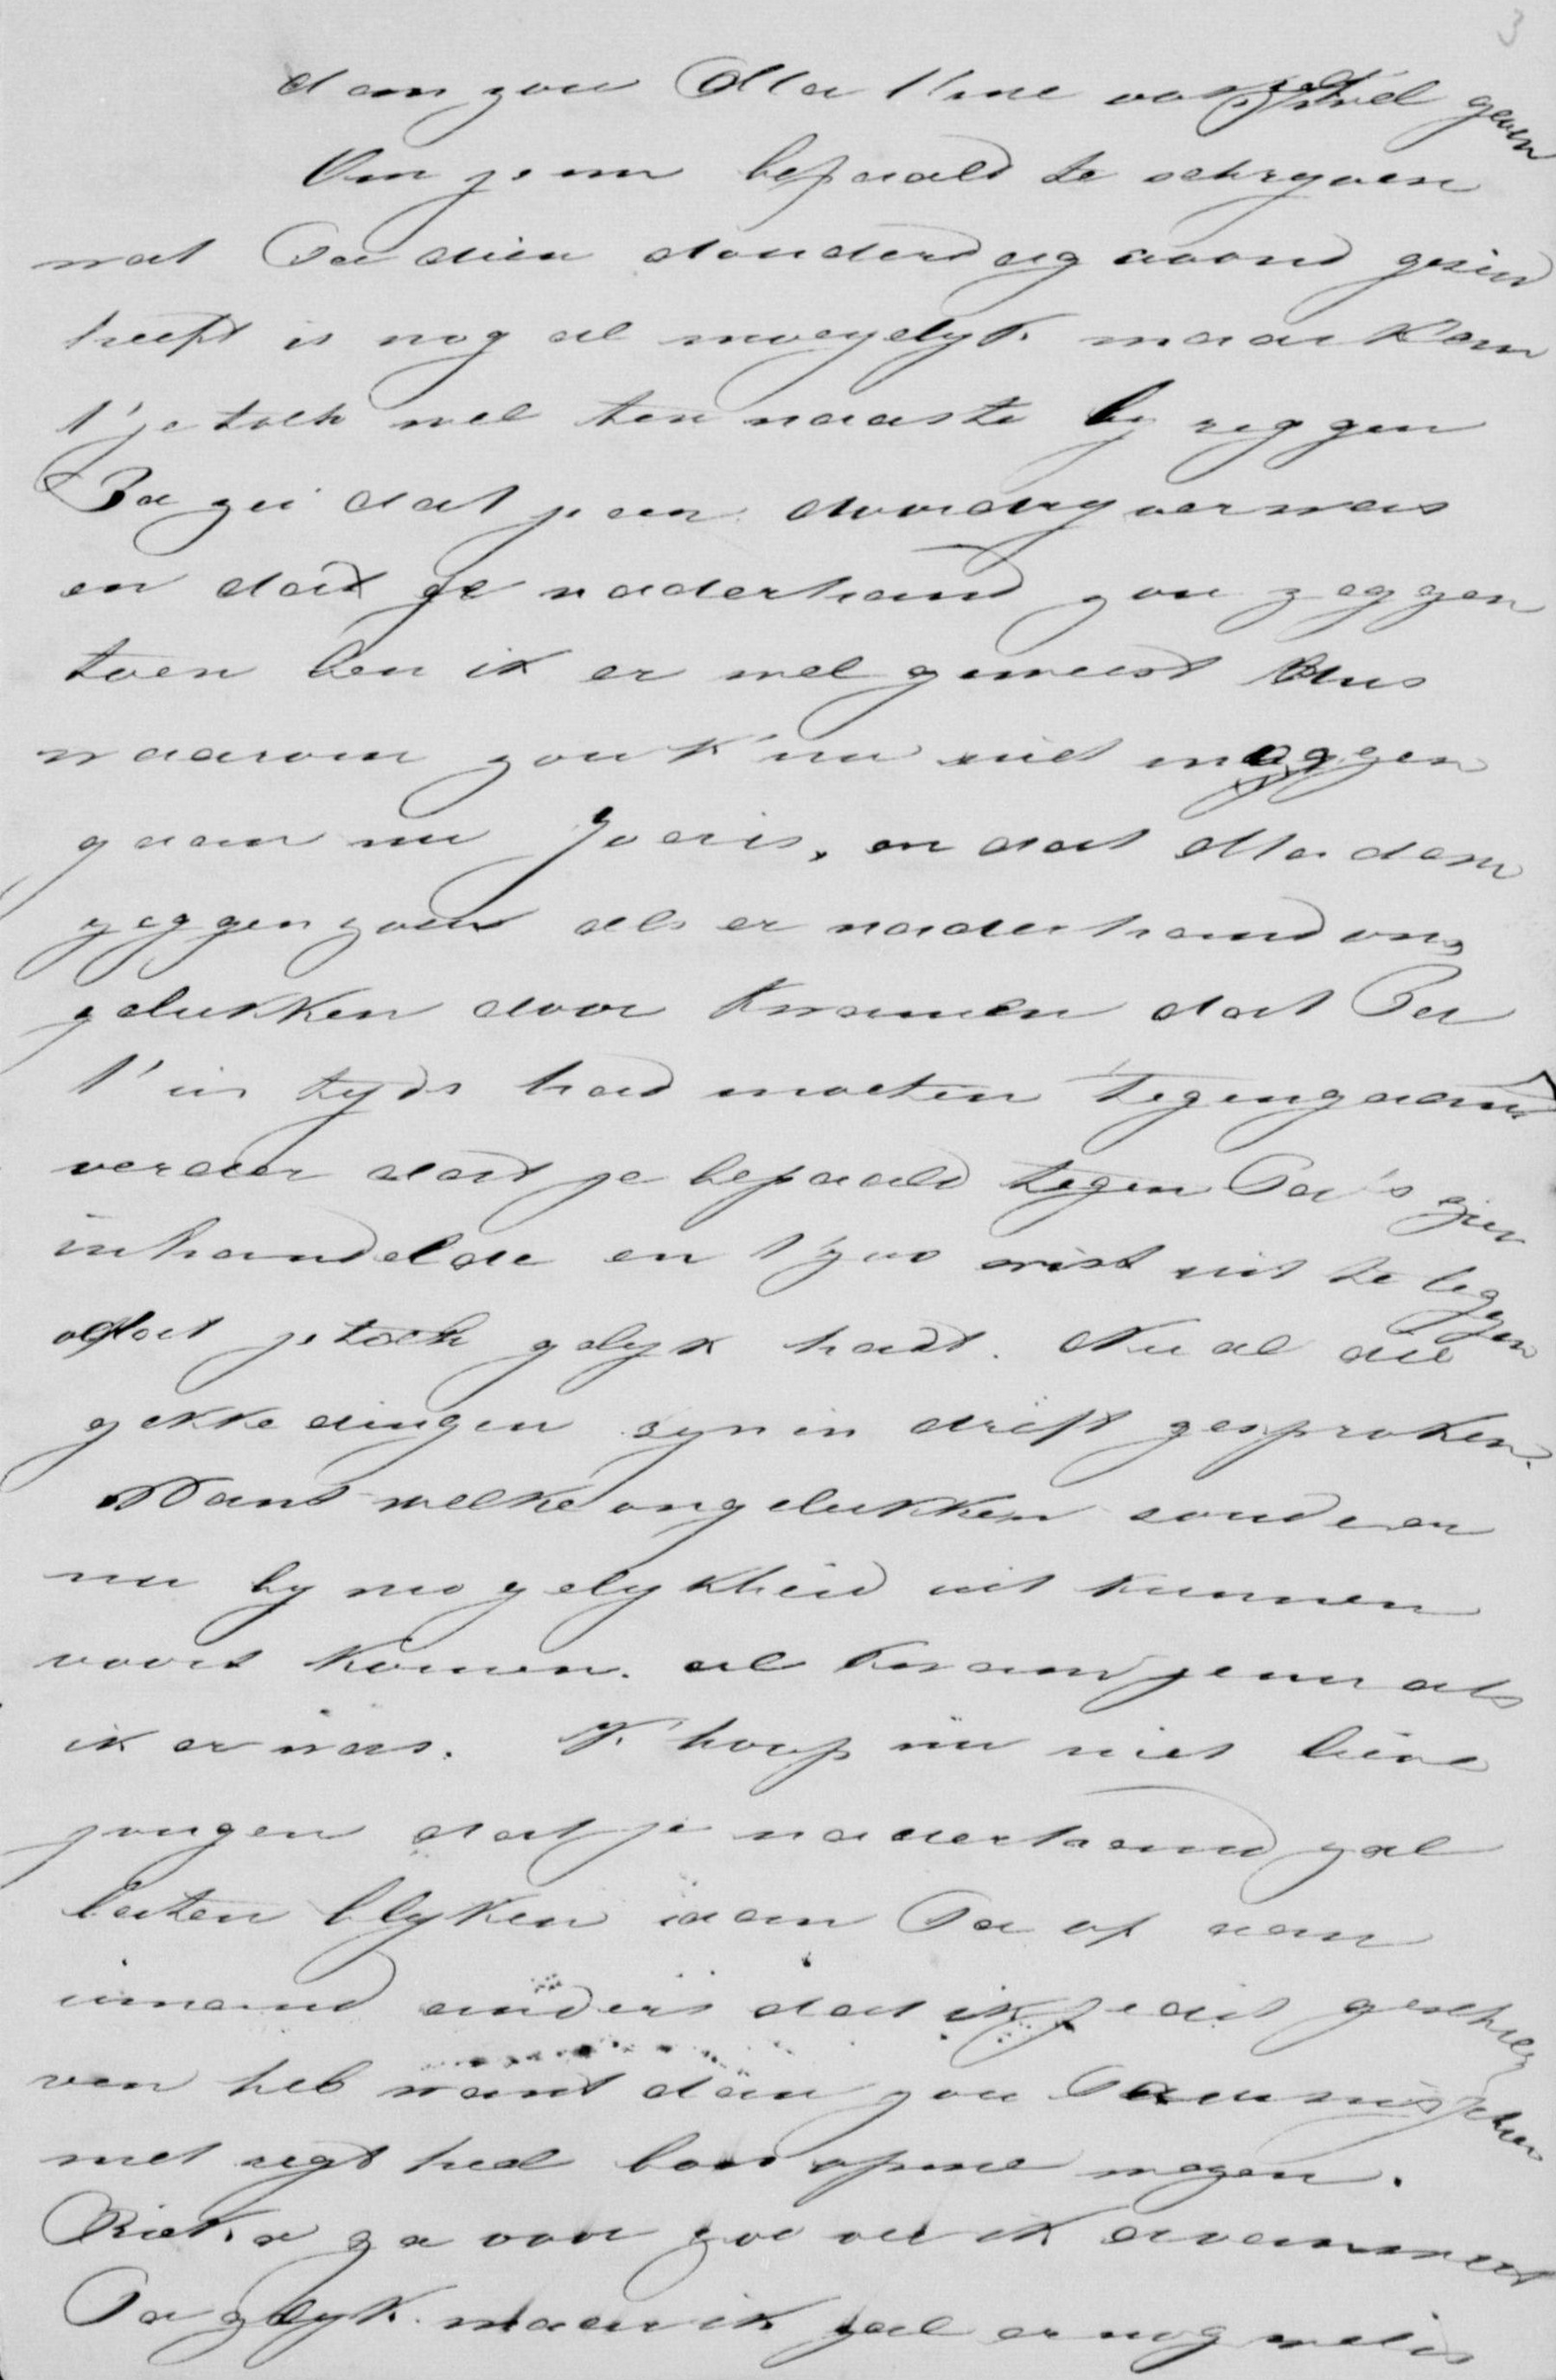 3
dan zou Ma t me wel geven
Om je nu bepaald te schryven
wat Pa dien donderdag avond gezeid
heeft is nog al moeyelyk maar kan
t' je toch wel ten naaste by zeggen
Pa zei dat je een doordryver was
en dat je naderhand zou zeggen
toen ben ik er wel geweest dus
waarom zou k' nu niet moggen
gaan nu Joris, en dat Ma dan
zeggen zou als er naderhand on,
gelukken door kwamen dat Pa
t' in tyds had moeten tegengaan
verder dat je bepaald tegen Pa's zin
in handelde en t' zoo wist uit te leggen
dat je toch gelyk hadt. Nu al die
gekke dingen zyn in drift gesproken.
Want welke ongelukken zouden er
nu by mogelykheid uit kunnen
voort komen. al kwam je nu als
ik er was. K' hoop nu niet lieve
jongen dat je naderhand zal
laten blyken aan Pa of aan
iemand anders dat ik je dit geschre,
ven heb want dan zou Pa misschien
met regt heel boos op me wezen.
ga voor zoo ver ik
Pa gelyk. maar ik zal er nog